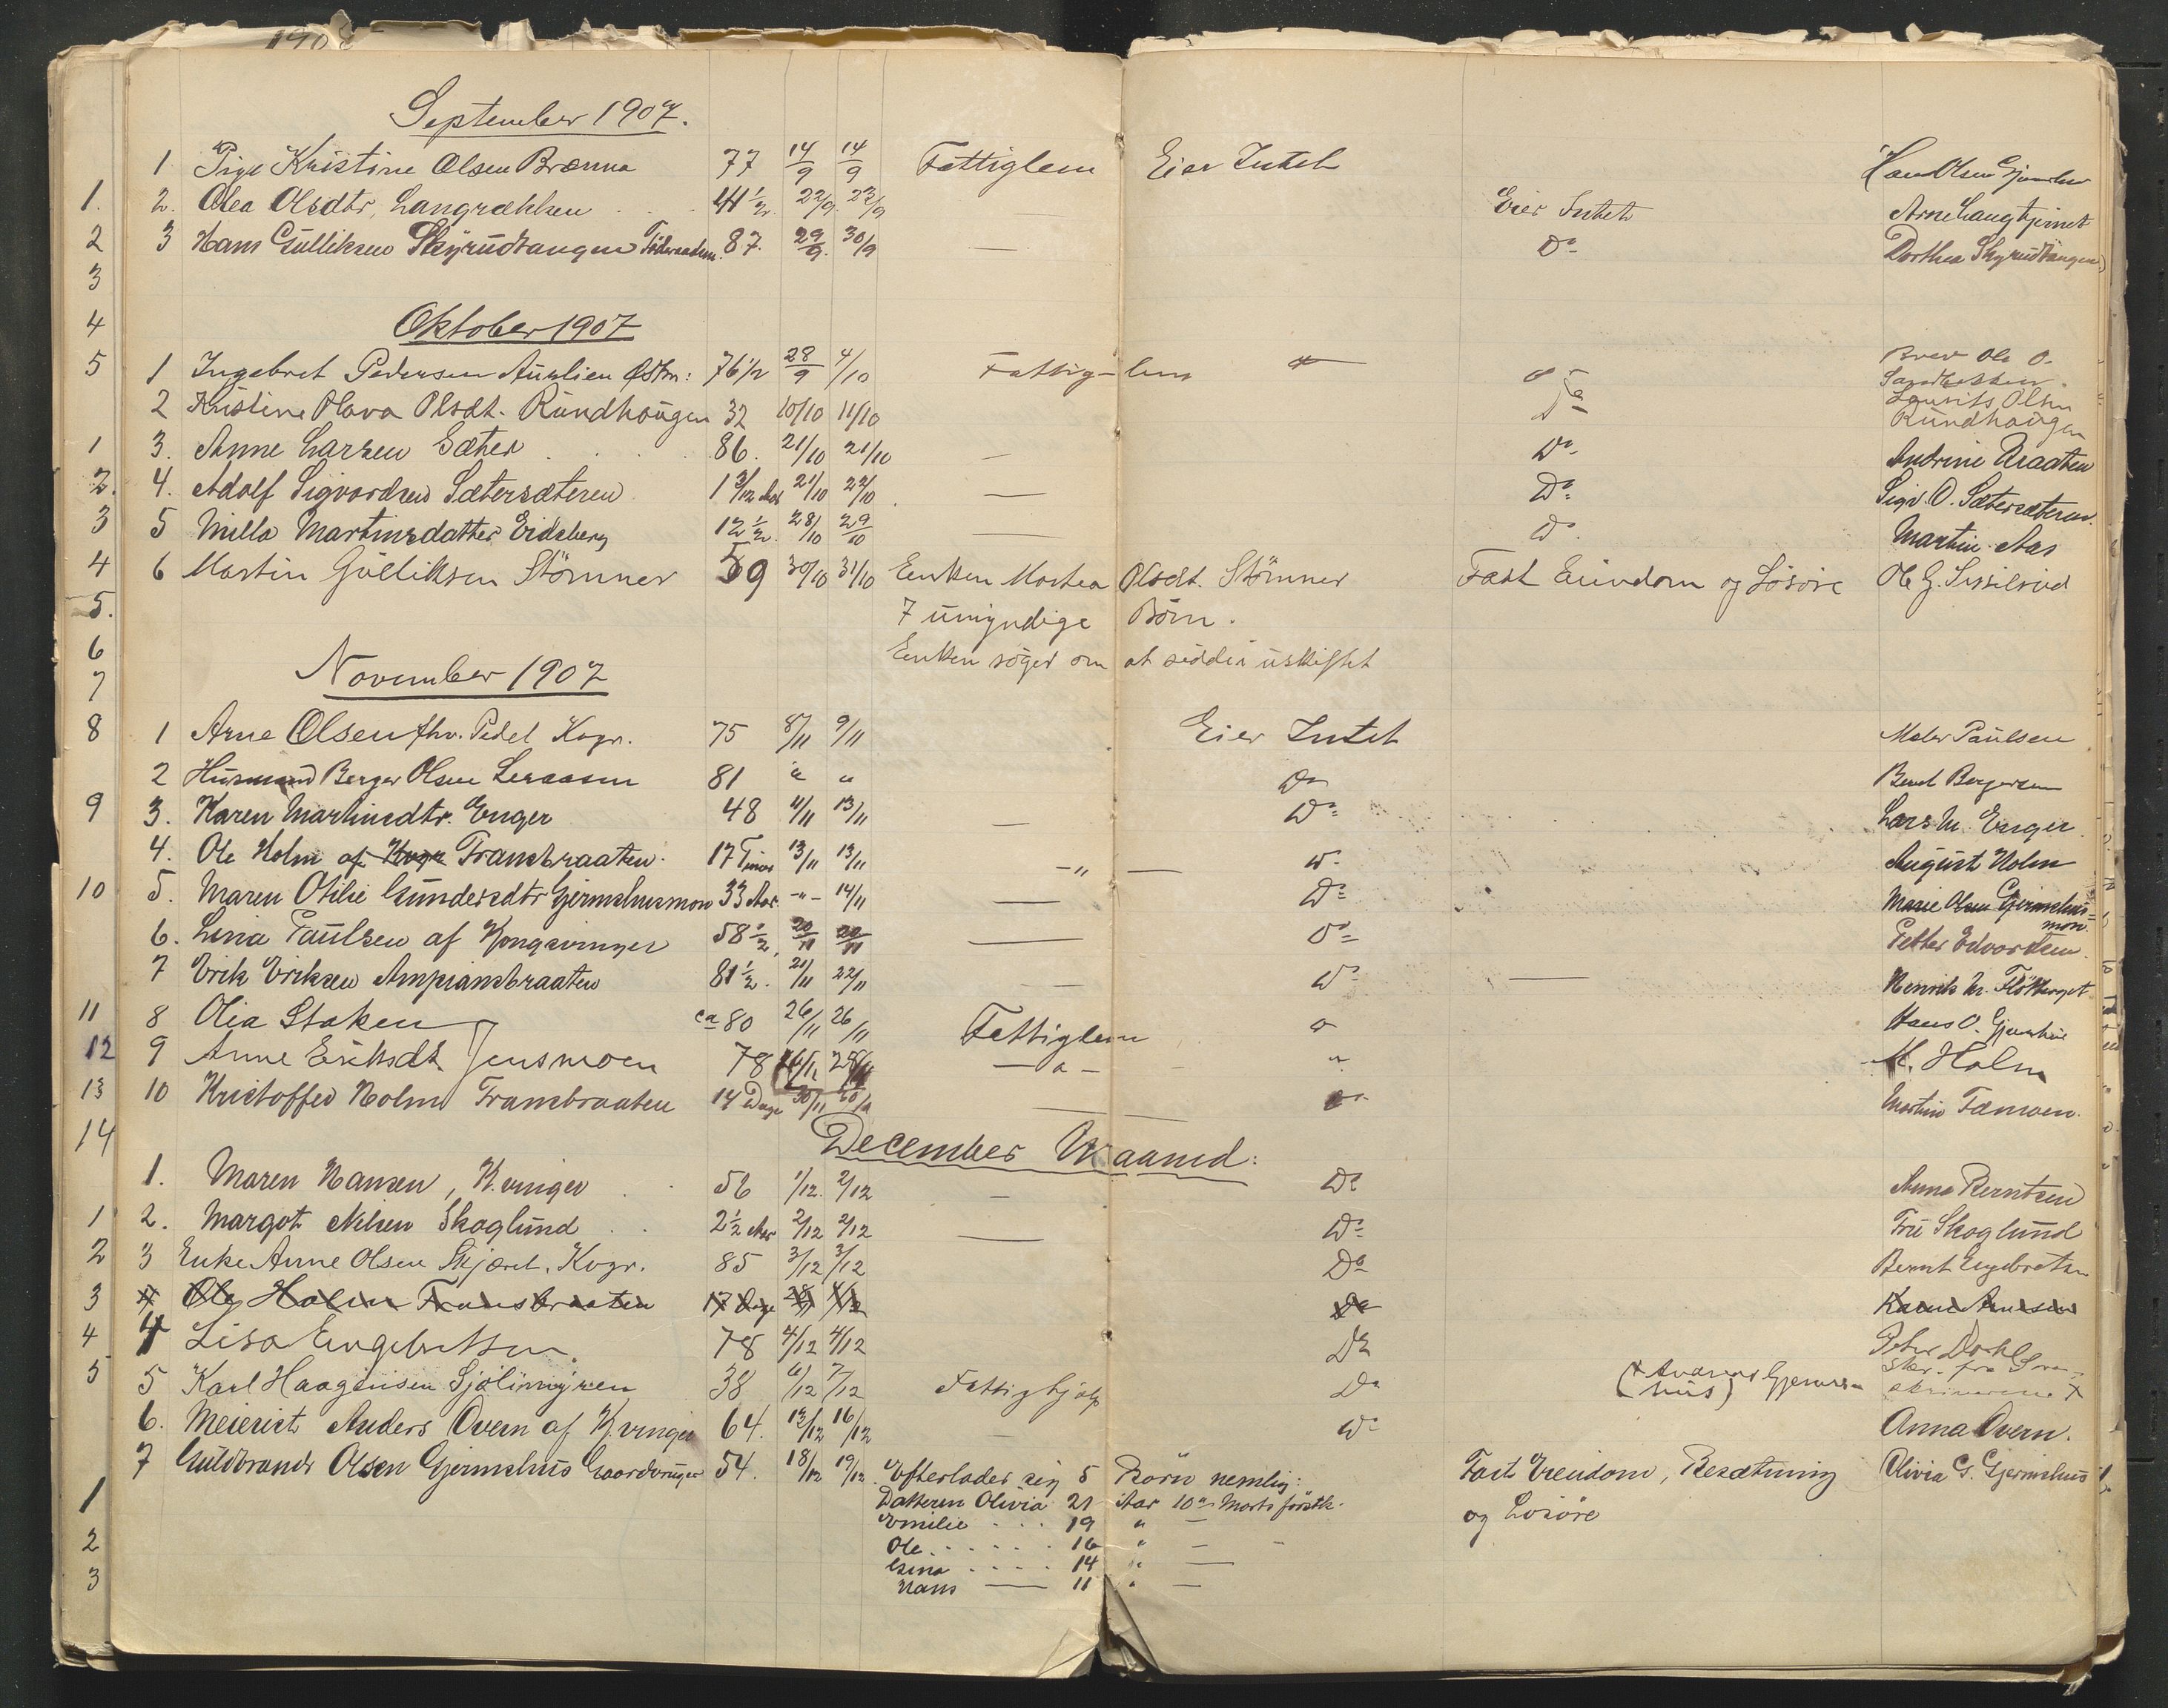 190
September 1907.
1 Pige Kristine Olsen Brænna 77 14/9 14/9 Fattiglem Eier Intet Hans Olsen
1. 2. Olea Olsdtr, Langrækken 41 1/2 22/9 23/9 — Eier Intet Arne Langtjernet
2 3 Hans Gulliksen Skyrudtangen Föderaadsm. 87. 29/9 30/9 — Do Dorthea Skyrudtangen
3
4 Oktober 1907
5 1 Ingebret Pedersen Aurlien Östm: 76 1/2 28/9 4/10 Fattig-lem Brev Ole O. Sandbekken
2 Kristine Olava Olsdt. Rundhaugen 32 10/10 11/10 Do Laurits Olsen Rundhaugen
1 3. Anne Larsen Sæter 86. 21/10 21/10 — Do Andrine Braaten
2. 4. Adolf Sigvardsen Sætersæteren 1 3/12 Aar 21/10 22/10 — Do Sigv. O. Sætersæteren.
3 5 Milla Martinsdatter Eidsberg 12 1/2. 28/10 29/10 — Do Martin Aas
4 6 Martin Gulliksen Störmner 59 30/10 31/10 Enken Martea Olsdt. Störmner Fast Eiendom og Lösöre Ole G. Sissilrud
5. 7 umyndige Börn.
6 Enken söger om at sidde i uskiftet
7 November 1907
8 1 Arne Olsen fhv. Pedel Kvgr. 75 8/11 9/11 Eier Intet Maler Paulsen
2 Husmand Berger Olsen Leraasen 81 " " Do Bernt Bergersen
9 3. Karen Martinsdtr. Enger 48 11/11 13/11 — Do Lars M. Enger
4. Ole Holm af Kvgr Fransbraaten. 17 Timer 13/11 13/11 — " — Do August Holm
10 5. Maren Otilie Gundersdtr Gjermshusmon 33 Aar - " - 14/11 — Do Marie Olsen Gjermshus=mon.
6. Lina Paulsen af Kongsvinger 58 1/2, 20/11 20/11 — Do Petter Edvardsen.
7 Erik Eriksen Ampiansbraaten 81 1/2. 21/11 22/11 — Do — Henrik M. Flötberget
11 8 Olia Staken ca 80 26/11 26/11 Fattiglem Do Hans O.
12 9 Anne Eriksdt. Jensmoen 78 — " — " M. Holm
13 10 Kristoffer Holm Fransbraaten 14 Dage 30/11 30/11 — Do Martin Tæmoen.
14 December Maaned:
1. Maren Hansen, K.vinger 56 1/12. 2/12 — Do Anna Berntsen
1 2. Margot Nilsen Skoglund 2 1/2 Aar 2/12 2/12 — Do Fru Skoglund
2 3 Enke Anne Olsen Skjæret. Kvgr. 85 3/12 3/12 Do Bernt Engebretsen
3 4 Ole Holm Fransbraaten 17 Dage Do
4 4 Lisa Engebretsen. 78 4/12 4/12 Do Peter Dahl
5 5 Karl Haagensen Sjölimyren 38 6/12 7/12 Fattighjelp Do Skr. fra Soren-skriveren x
6. Meierist Anders Overn af K.vinger 64. 13/12 16/12 — Do Anna Overn.
7 Guldbrand Olsen Gjermshus Gaardbruger 54. 18/12 19/12. Efterlader sig 5 Börn nemlig: Fast Eiendom, Besætning Olivia G. Gjermshus
1 Datteren Olivia 21 Aar 10de Marts förstk. og Lösöre
Emilie . . . 19 " —
2 Ole . . . . . 16 " — -
Gina . . . . 14 " —
3 Hans — 11 " —